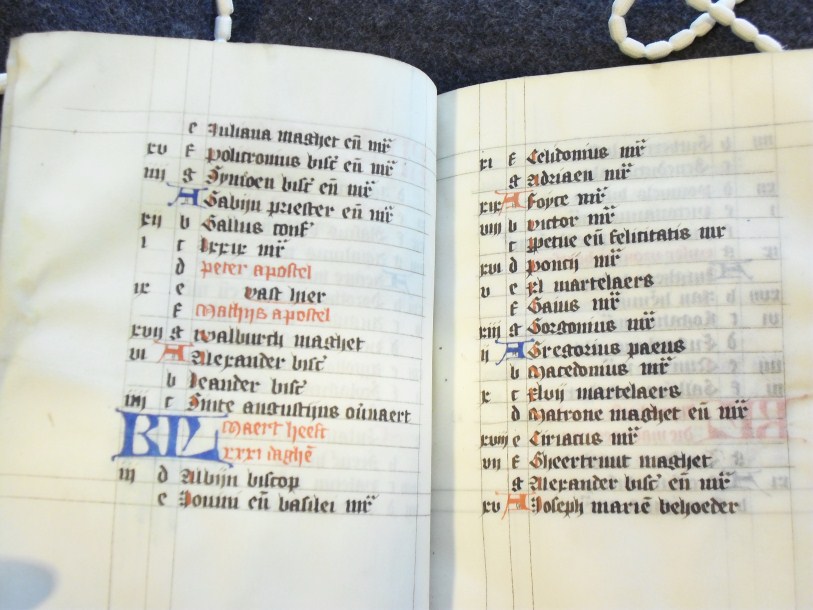 e Juliana maghet eñ mr̃
xv f policromus bisc̃ eñ mr̃
iiij g Symoen bisc̃ eñ mr̃
A Sabijn priester eñ mr̃
xij b Gallus conf̃
i c lxxix mr̃
d peter apostel
ix e vast hier
f Mathijs apostel
xvij g walburch maghet
vi A Alexander bisc̃
b leander bisc̃
iiij c Sinte augustijns
KL Maert heeft
xxxi daghẽ
iij d Albijn biscop
e eñ basilei mr̃
xi f Celidonius mr̃
g Adriaen mr̃
xix A foyce mr̃
viij b victor mr̃
c petue eñ felicitatis mr
xvi d poncij mr̃
v e xl martelaers
f Gaius mr̃
xiij g Gorgonius mr̃
ij A Gregorius paeus
b Macedonius mr̃
x c xlvij martelaers
d Matrone maghet eñ mr̃
xviij e Ciriacus mr̃
vij f Gheertruut maghet
g Alexander bisc̃ eñ mr̃
xv A Joseph mariẽ behoeder